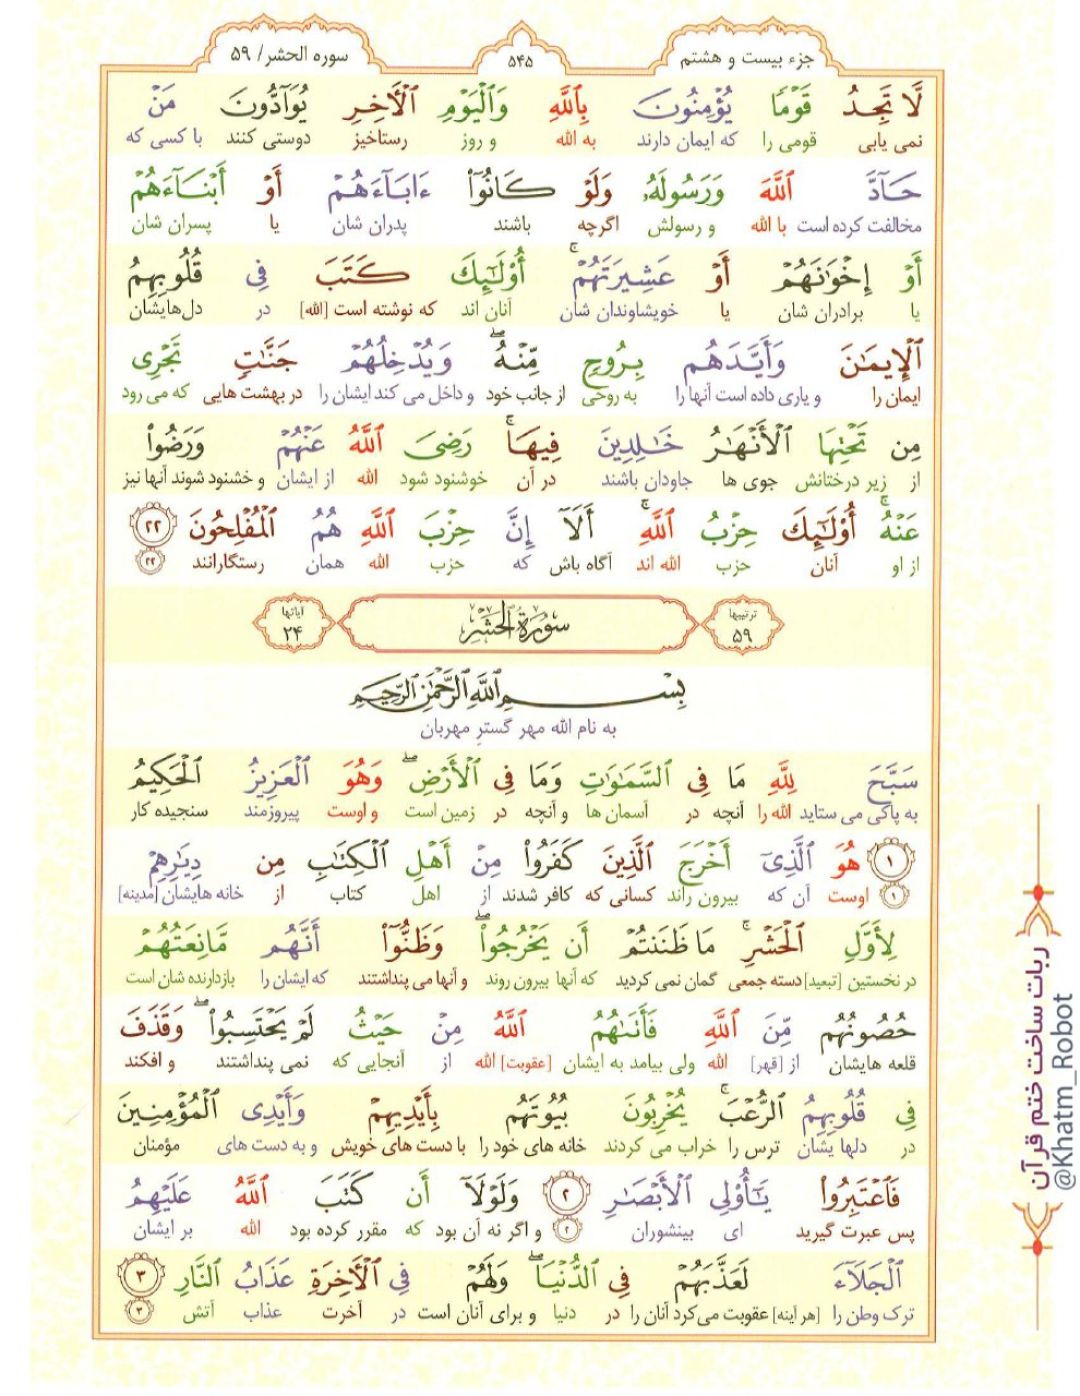 جزء بیست و هشتم
۵۴۵
سوره الحشر/ ۵۹
لَّا تَجِدُ قَوْمًا يُؤْمِنُونَ بِٱللَّهِ وَٱلْيَوْمِ ٱلْأَخِرِ يُوَآدُّونَ مَنْ
نمی یابی قومی را که ایمان دارند به الله و روز رستاخیز دوستی کنند با کسی که
حَآدَّ ٱللَّهَ وَرَسُولَهُۥ وَلَوْ كَانُوٓا۟ ءَابَآءَهُمْ أَوْ أَبْنَآءَهُمْ
مخالفت کرده است با الله و رسولش اگرچه باشند پدران شان یا پسران شان
أَوْ إِخْوَٰنَهُمْ أَوْ عَشِيرَتَهُمْ ۚ أُو۟لَٰٓئِكَ كَتَبَ فِى قُلُوبِهِمُ
یا برادران شان یا خویشاوندان شان آنان اند که نوشته است [الله] در دل‌هایشان
ٱلْإِيمَٰنَ وَأَيَّدَهُم بِرُوحٍ مِّنْهُ ۖ وَيُدْخِلُهُمْ جَنَّٰتٍ تَجْرِى
ایمان را و یاری داده است آنها را به روحی از جانب خود و داخل می کند ایشان را در بهشت هایی که می رود
مِن تَحْتِهَا ٱلْأَنْهَٰرُ خَٰلِدِينَ فِيهَا ۚ رَضِىَ ٱللَّهُ عَنْهُمْ وَرَضُوا۟
از زیر درختانش جوی ها جاودان باشند در آن خوشنود شود الله از ایشان و خشنود شوند آنها نیز
عَنْهُ ۚ أُو۟لَٰٓئِكَ حِزْبُ ٱللَّهِ ۚ أَلَآ إِنَّ حِزْبَ ٱللَّهِ هُمُ ٱلْمُفْلِحُونَ ۲۲
از او آنان حزب الله اند آگاه باش که حزب الله همان رستگارانند ۲۲
ترتیبها ۵۹
سُورَةُ الحَشْرِ
آیاتها ۲۴
بِسْمِ ٱللَّهِ ٱلرَّحْمَٰنِ ٱلرَّحِيمِ
به نام الله مهر گسترِ مهربان
سَبَّحَ لِلَّهِ مَا فِى ٱلسَّمَٰوَٰتِ وَمَا فِى ٱلْأَرْضِ ۖ وَهُوَ ٱلْعَزِيزُ ٱلْحَكِيمُ
به پاکی می ستاید الله را آنچه در آسمان ها و آنچه در زمین است و اوست پیروزمند سنجیده کار
۱ هُوَ ٱلَّذِىٓ أَخْرَجَ ٱلَّذِينَ كَفَرُوا۟ مِنْ أَهْلِ ٱلْكِتَٰبِ مِن دِيَٰرِهِمْ
۱ اوست آن که بیرون راند کسانی که کافر شدند از اهل کتاب از خانه هایشان [مدینه]
لِأَوَّلِ ٱلْحَشْرِ ۚ مَا ظَنَنتُمْ أَن يَخْرُجُوا۟ ۖ وَظَنُّوٓا۟ أَنَّهُم مَّانِعَتُهُمْ
در نخستین [تبعید] دسته جمعی گمان نمی کردید که آنها بیرون روند و آنها می پنداشتند که ایشان را بازدارنده شان است
حُصُونُهُم مِّنَ ٱللَّهِ فَأَتَىٰهُمُ ٱللَّهُ مِنْ حَيْثُ لَمْ يَحْتَسِبُوا۟ ۖ وَقَذَفَ
قلعه هایشان از [قهر] الله ولی بیامد به ایشان [عقوبت] الله از آنجایی که نمی پنداشتند و افکند
فِى قُلُوبِهِمُ ٱلرُّعْبَ ۚ يُخْرِبُونَ بُيُوتَهُم بِأَيْدِيهِمْ وَأَيْدِى ٱلْمُؤْمِنِينَ
در دلها یشان ترس را خراب می کردند خانه های خود را با دست های خویش و به دست های مؤمنان
فَٱعْتَبِرُوا۟ يَٰٓأُو۟لِى ٱلْأَبْصَٰرِ ۲ وَلَوْلَآ أَن كَتَبَ ٱللَّهُ عَلَيْهِمُ
پس عبرت گیرید ای بینشوران ۲ و اگر نه آن بود که مقرر کرده بود الله بر ایشان
ٱلْجَلَآءَ لَعَذَّبَهُمْ فِى ٱلدُّنْيَا ۖ وَلَهُمْ فِى ٱلْأَخِرَةِ عَذَابُ ٱلنَّارِ ۳
ترک وطن را [هر آینه] عقوبت می‌کرد آنان را در دنیا و برای آنان است در آخرت عذاب آتش ۳
ربات ساخت ختم قرآن
@Khatm_Robot